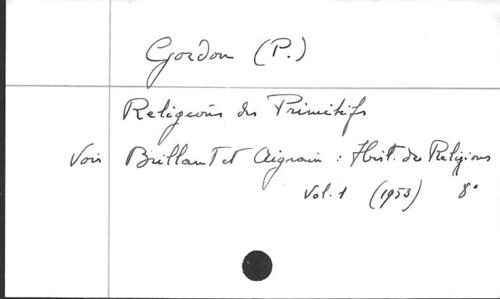 Gordon (P.)
Religions des Primitifs
Voir Brillant et Aigrain : Hist. des Religions
Vol. 1 (1953) 8°